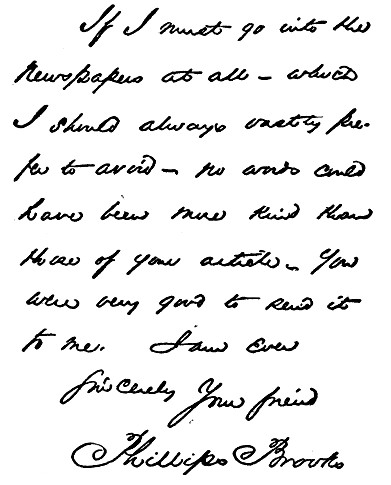 If I must go into the
Newspapers at all – which
I should always vastly pre-
fer to avoid – no words could
have been more kind than
those of your article. You
were very good to send it
to me. I am ever
Sincerely Your friend
Phillips Brooks